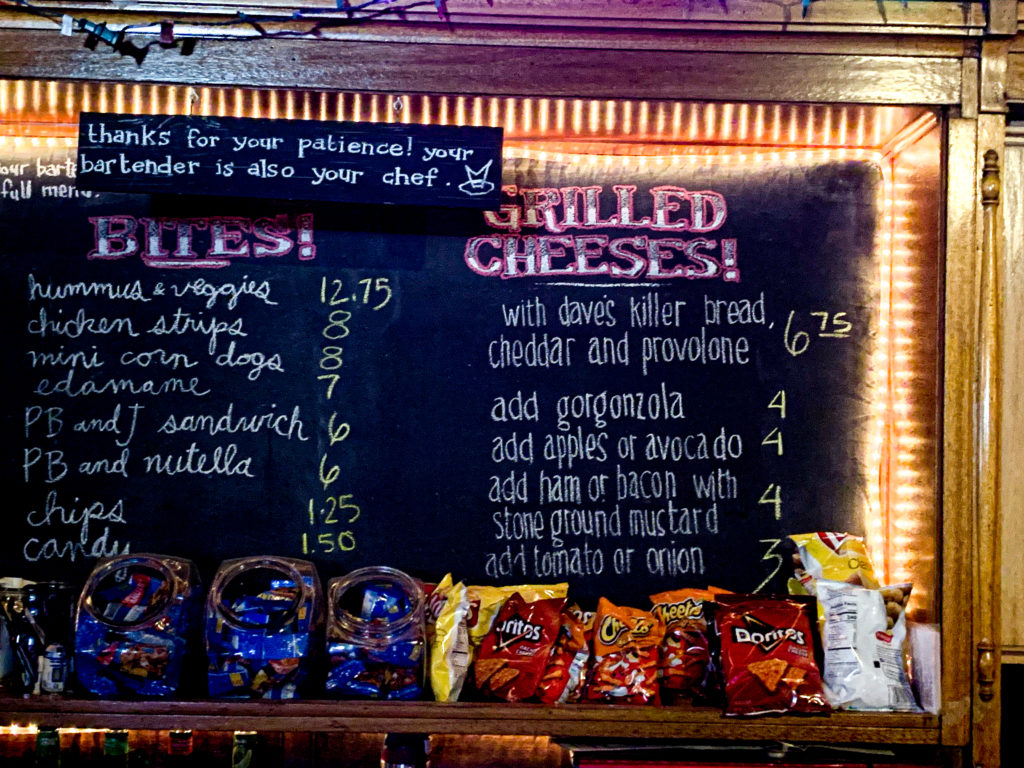 thanks for your patience! your
bartender is also your chef.
full menu.
BITES!
hummus & veggies 12.75
chicken strips 8
mini corn dogs 8
edamame 7
PB and J sandwich 6
PB and nutella 6
chips 1.25
candy 1.50
GRILLED
CHEESES!
with dave's killer bread,
cheddar and provolone 6 75
add gorgonzola 4
add apples or avocado 4
add ham or bacon with
stone ground mustard 4
add tomato or onion 3
Doritos
Cheetos
Doritos